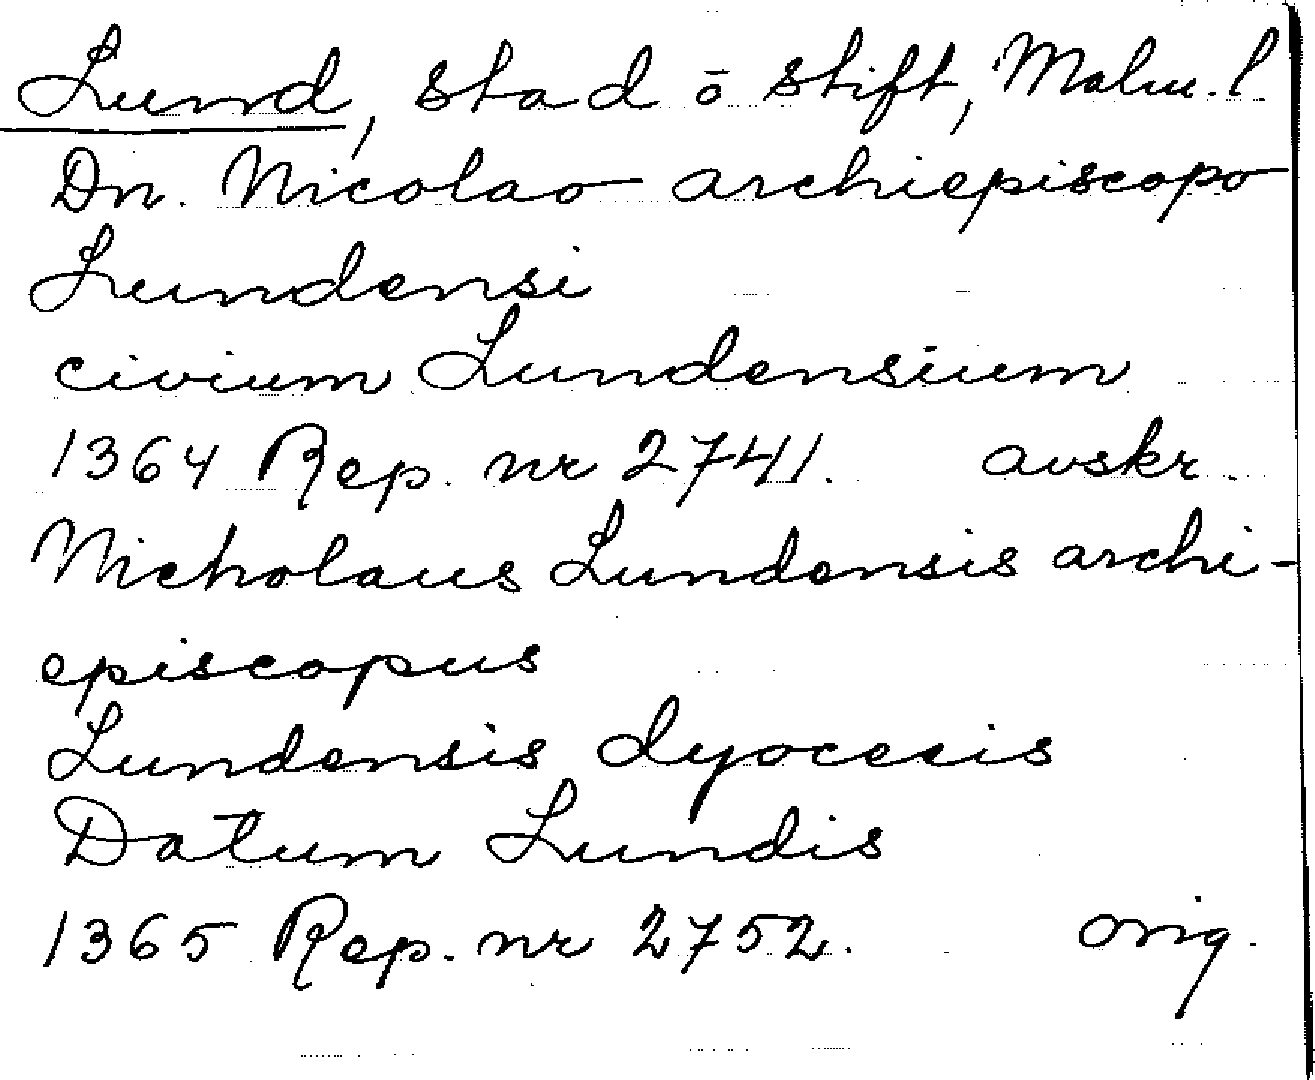 Lund, stad ō stift, Malm. l
Dn. Nicolao archiepiscopo
Lundensi
civium Lundensium
1364 Rep. nr 2741. avskr.
Nicholaus Lundensis archi-
episcopus
Lundensis dyocesis
Datum Lundis
1365 Rep. nr 2752. orig.